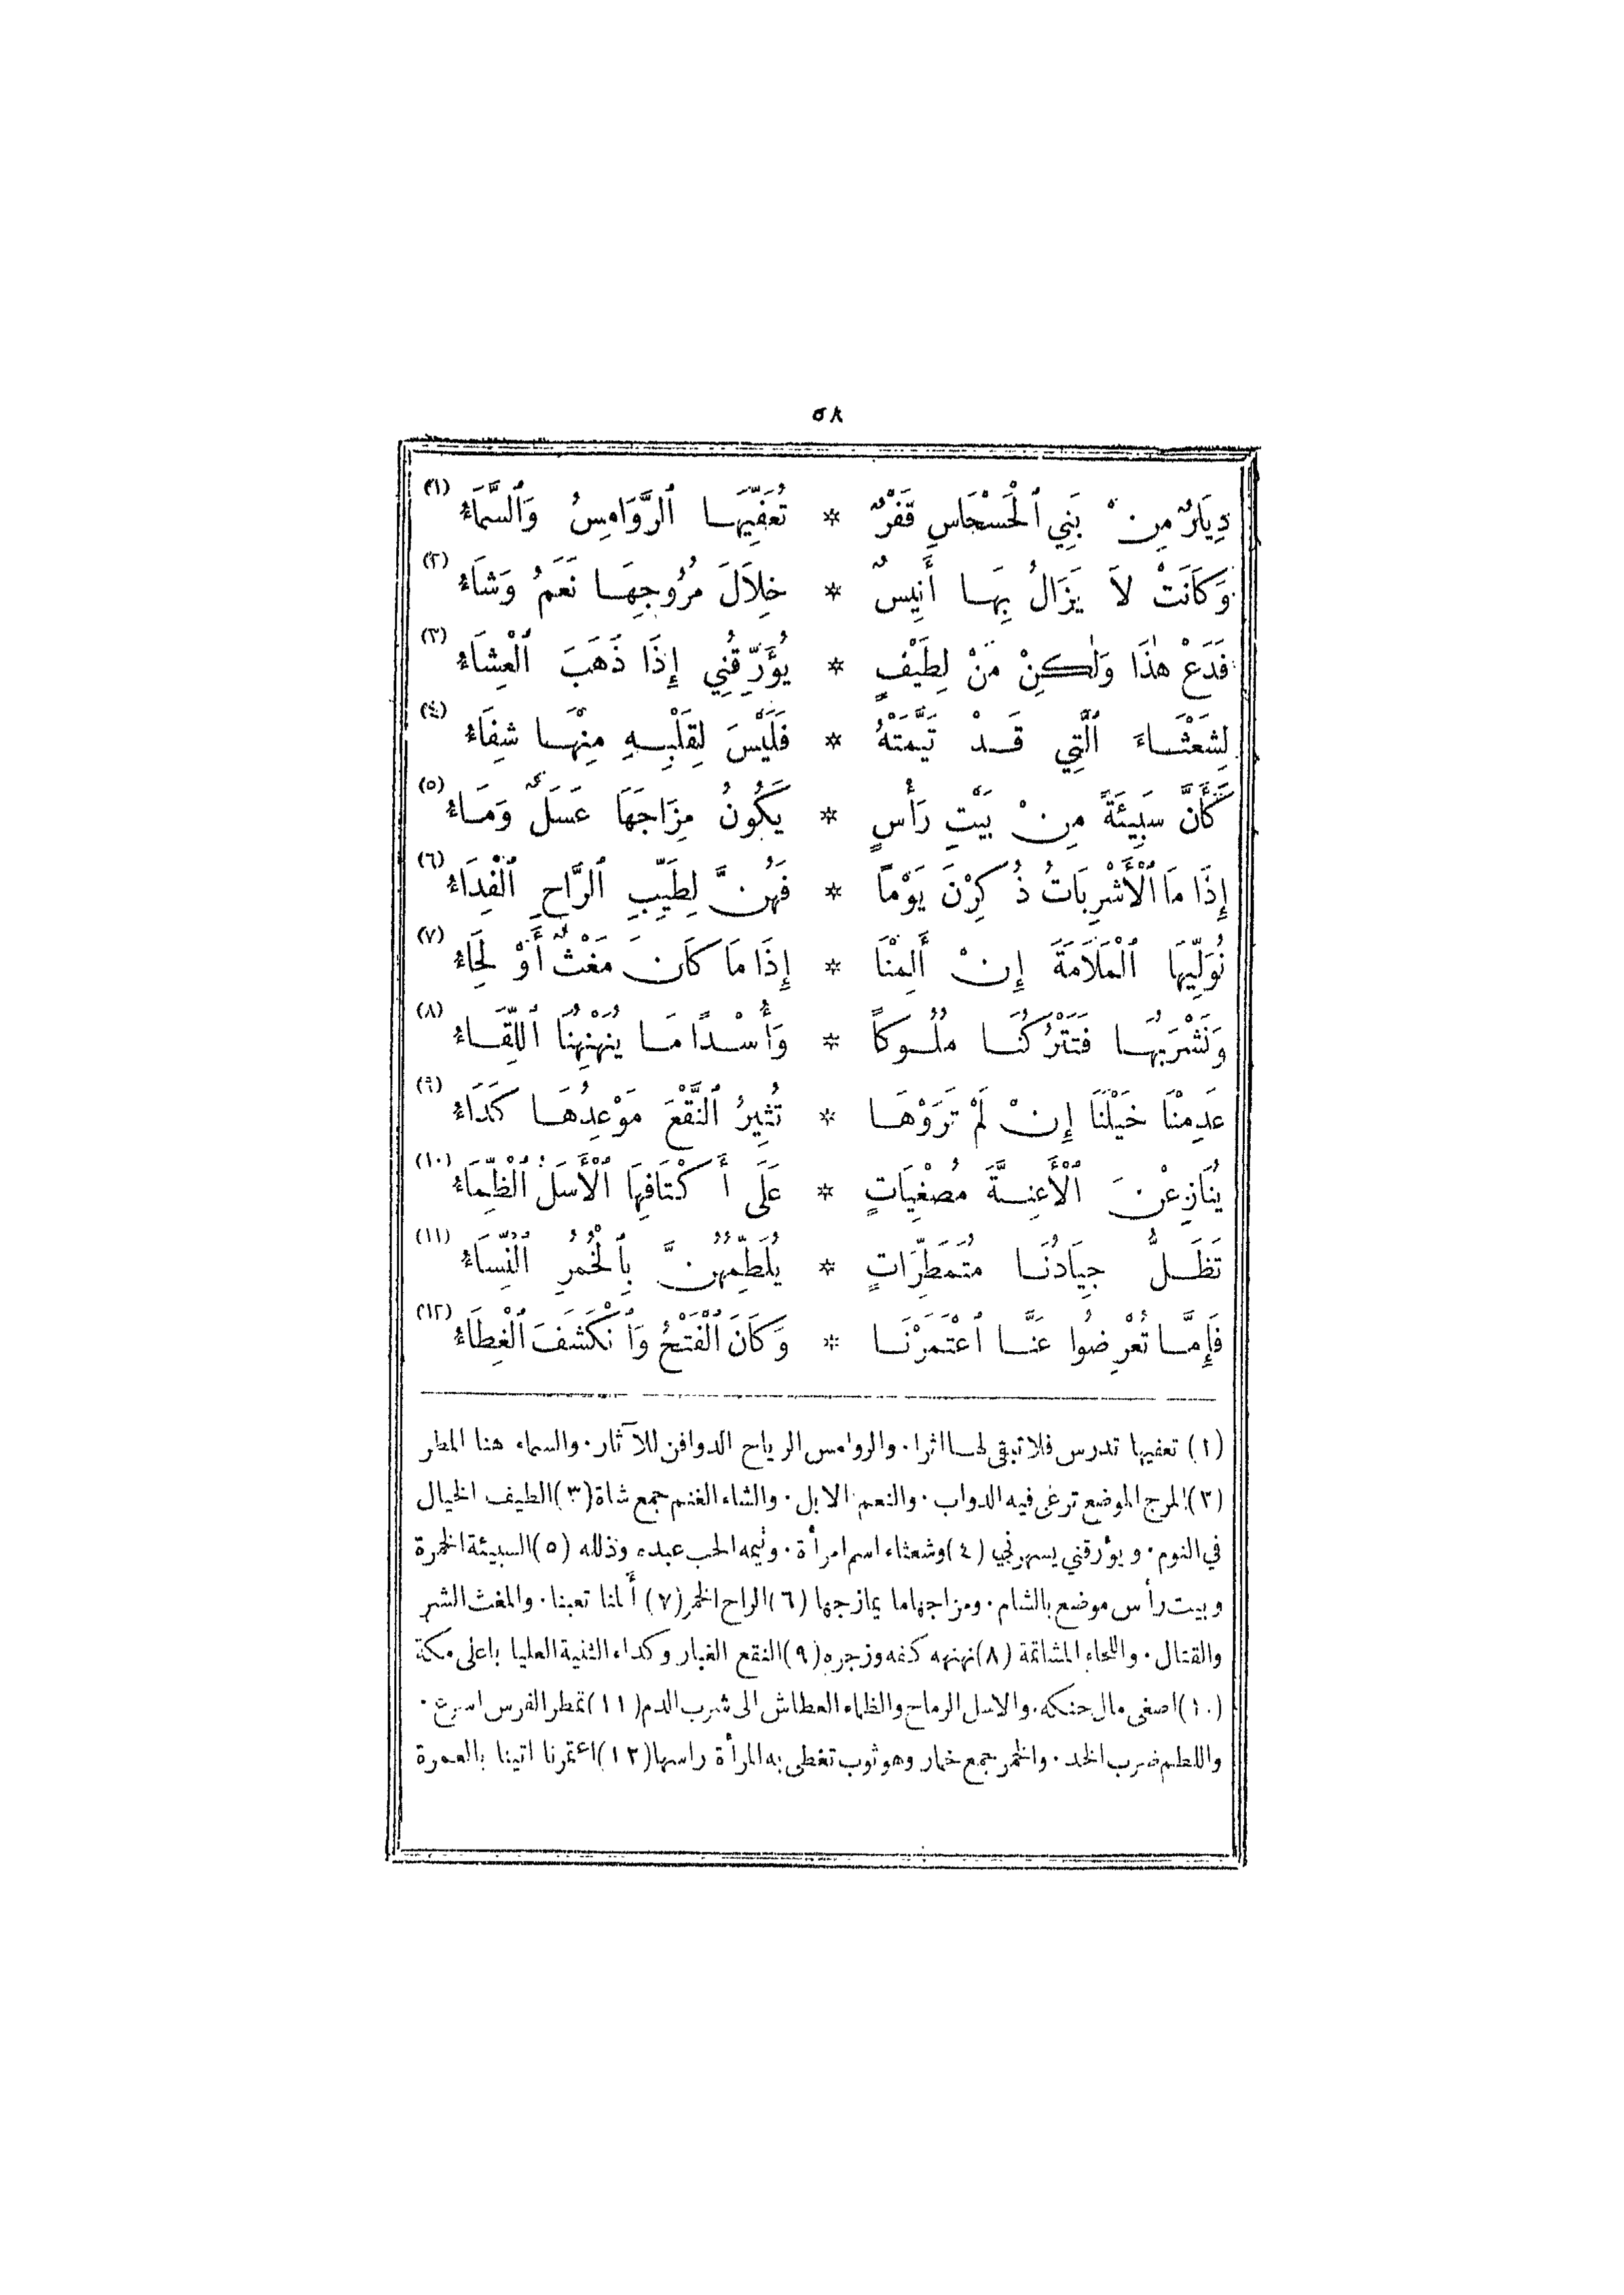 ٥٨
دِيَارٌ مِنْ بَنِي ٱلْحَسْحَاسِ قَفْرٌ * تُعَفِّيهَا ٱلرَّوَامِسُ وَٱلسَّمَاءُ (١)
وَكَانَتْ لاَ يَزَالُ بِهَا أَنِيسٌ * خِلاَلَ مُرُوجِهَا نَعَمٌ وَشَاءُ (٢)
فَدَعْ هٰذَا وَلٰكِنْ مَنْ لِطَيْفٍ * يُؤَرِّقُنِي إِذَا ذَهَبَ ٱلْعِشَاءُ (٣)
لِشَعْثَاءَ ٱلَّتِي قَدْ تَيَّمَتْهُ * فَلَيْسَ لِقَلْبِهِ مِنْهَا شِفَاءُ (٤)
كَأَنَّ سَبِيئَةً مِنْ بَيْتِ رَأْسٍ * يَكُونُ مِزَاجَهَا عَسَلٌ وَمَاءُ (٥)
إِذَا مَا ٱلْأَشْرِبَاتُ ذُكِرْنَ يَوْمًا * فَهُنَّ لِطَيِّبِ ٱلرَّاحِ ٱلْفِدَاءُ (٦)
نُوَلِّيهَا ٱلْمَلَامَةَ إِنْ أَلَمْنَا * إِذَا مَا كَانَ مَغْثٌ أَوْ لِحَاءُ (٧)
وَنَشْرَبُهَا فَتَتْرُكُنَا مُلُوكاً * وَأُسْدًا مَا يُنَهْنِهُنَا ٱللِّقَاءُ (٨)
عَدِمْنَا خَيْلَنَا إِنْ لَمْ تَرَوْهَا * تُثِيرُ ٱلنَّقْعَ مَوْعِدُهَا كَدَاءُ (٩)
يُنَازِعْنَ ٱلْأَعِنَّةَ مُصْغِيَاتٍ * عَلَى أَكْتَافِهَا ٱلْأَسَلُ ٱلظِّمَاءُ (١٠)
تَظَلُّ جِيَادُنَا مُتَمَطِّرَاتٍ * يُلَطِّمُهُنَّ بِٱلْخُمُرِ ٱلنِّسَاءُ (١١)
فَإِمَّا تُعْرِضُوا عَنَّا ٱعْتَمَرْنَا * وَكَانَ ٱلْفَتْحُ وَٱنْكَشَفَ ٱلْغِطَاءُ (١٢)
(١) تعفيها تدرس فلا تبقي لها اثرا . والروامس الرياح الدوافن للآثار . والسماء هنا المطر
(٢) المرج الموضع ترعى فيه الدواب . والنعم الابل . والشاء الغنم جمع شاة (٣) الطيف الخيال
في النوم . ويؤرقني يسهرني (٤) وشعثاء اسم امرأة . وتيمه الحب عبده وذلله (٥) السبيئة الخمرة
وبيت رأس موضع بالشام . ومزاجها ما يمازجها (٦) الراح الخمر (٧) أَلمنا تعبنا . والمغث الشر
والقتال . واللحاء المشاتمة (٨) نهنهه كفه وزجره (٩) النقع الغبار وكداء الثنية العليا باعلى مكة
(١٠) اصغى مال حنكه . والاسل الرماح والظماء العطاش الى شرب الدم (١١) تمطر الفرس اسرع .
واللطم ضرب الخد . والخمر جمع خمار وهو ثوب تغطي به المرأة راسها (١٢) اعتمرنا اتينا بالعمرة